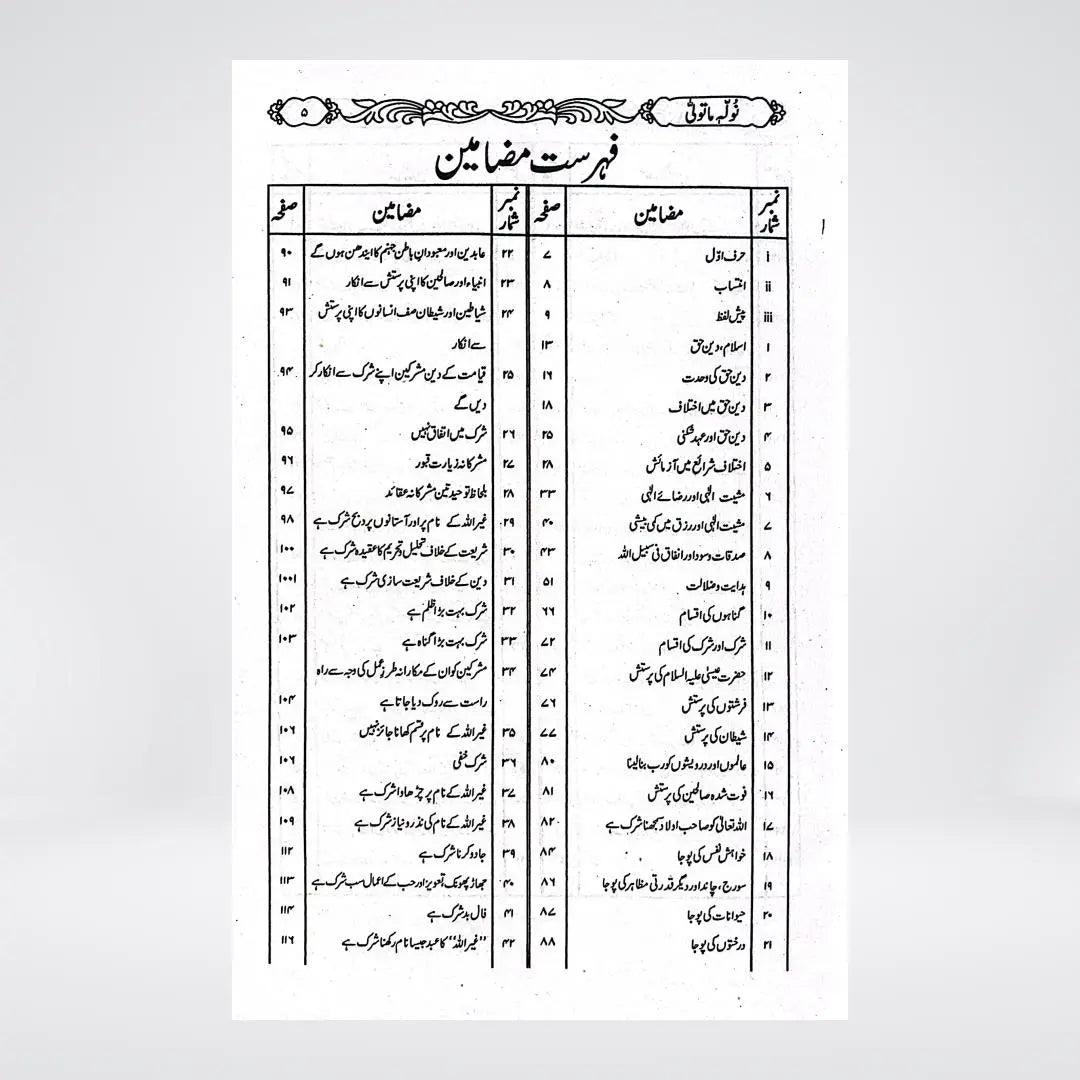 نُولّہٖ ماتولّیٰ ۵
فہرست مضامین
نمبر شمار مضامین صفحہ
i حرف اوّل ۷
ii انتساب ۸
iii پیش لفظ ۹
۱ اسلام، دین حق ۱۳
۲ دین حق کی وحدت ۱۶
۳ دین حق میں اختلاف ۱۸
۴ دین حق اور عہد شکنی ۲۵
۵ اختلاف شرائع میں آزمائش ۲۸
۶ مشیت الٰہی اور رضائے الٰہی ۳۳
۷ مشیت الٰہی اور رزق میں کمی بیشی ۴۰
۸ صدقات و سود اور انفاق فی سبیل اللہ ۴۳
۹ ہدایت و ضلالت ۵۱
۱۰ گناہوں کی اقسام ۶۶
۱۱ شرک اور شرک کی اقسام ۷۲
۱۲ حضرت عیسیٰ علیہ السلام کی پرستش ۷۴
۱۳ فرشتوں کی پرستش ۷۶
۱۴ شیطان کی پرستش ۷۷
۱۵ عالموں اور درویشوں کو رب بنا لینا ۸۰
۱۶ فوت شدہ صالحین کی پرستش ۸۱
۱۷ اللہ تعالیٰ کو صاحب اولاد سمجھنا شرک ہے ۸۲
۱۸ خواہش نفس کی پوجا ۸۴
۱۹ سورج، چاند اور دیگر قدرتی مظاہر کی پوجا ۸۶
۲۰ حیوانات کی پوجا ۸۷
۲۱ درختوں کی پوجا ۸۸
نمبر شمار مضامین صفحہ
۲۲ عابدین اور معبودانِ باطن جہنم کا ایندھن ہوں گے ۹۰
۲۳ انبیاء اور صالحین کا اپنی پرستش سے انکار ۹۱
۲۴ شیاطین اور شیطان صف انسانوں کا اپنی پرستش ۹۳
سے انکار
۲۵ قیامت کے دین مشرکین اپنے شرک سے انکار کر ۹۴
دیں گے
۲۶ شرک میں اتفاق نہیں ۹۵
۲۷ مشرکانہ زیارت قبور ۹۶
۲۸ بلحاظ توحید تین مشرکانہ عقائد ۹۷
۲۹ غیر اللہ کے نام پر اور آستانوں پر دبح شرک ہے ۹۸
۳۰ شریعت کے خلاف تحلیل تحریم کا عقیدہ شرک ہے ۱۰۰
۳۱ دین کے خلاف شریعت سازی شرک ہے ۱۰۰۱
۳۲ شرک بہت بڑا ظلم ہے ۱۰۲
۳۳ شرک بہت بڑا گناہ ہے ۱۰۳
۳۴ مشرکین کو ان کے مکارانہ طرز عمل کی وجہ سے راہ
راست سے روک دیا جاتا ہے ۱۰۴
۳۵ غیر اللہ کے نام پر قسم کھانا جائز نہیں ۱۰۶
۳۶ شرک خفی ۱۰۶
۳۷ غیر اللہ کے نام پر چڑھاوا شرک ہے ۱۰۸
۳۸ غیر اللہ کے نام کی نذر و نیاز شرک ہے ۱۰۹
۳۹ جادو کرنا شرک ہے ۱۱۲
۴۰ جھاڑ پھونک، تعویز اور حب کے اعمال سب شرک ہے ۱۱۳
۴۱ فال بد شرک ہے ۱۱۴
۴۲ ”غیر اللہ“ کا عبد جیسا نام رکھنا شرک ہے ۱۱۶